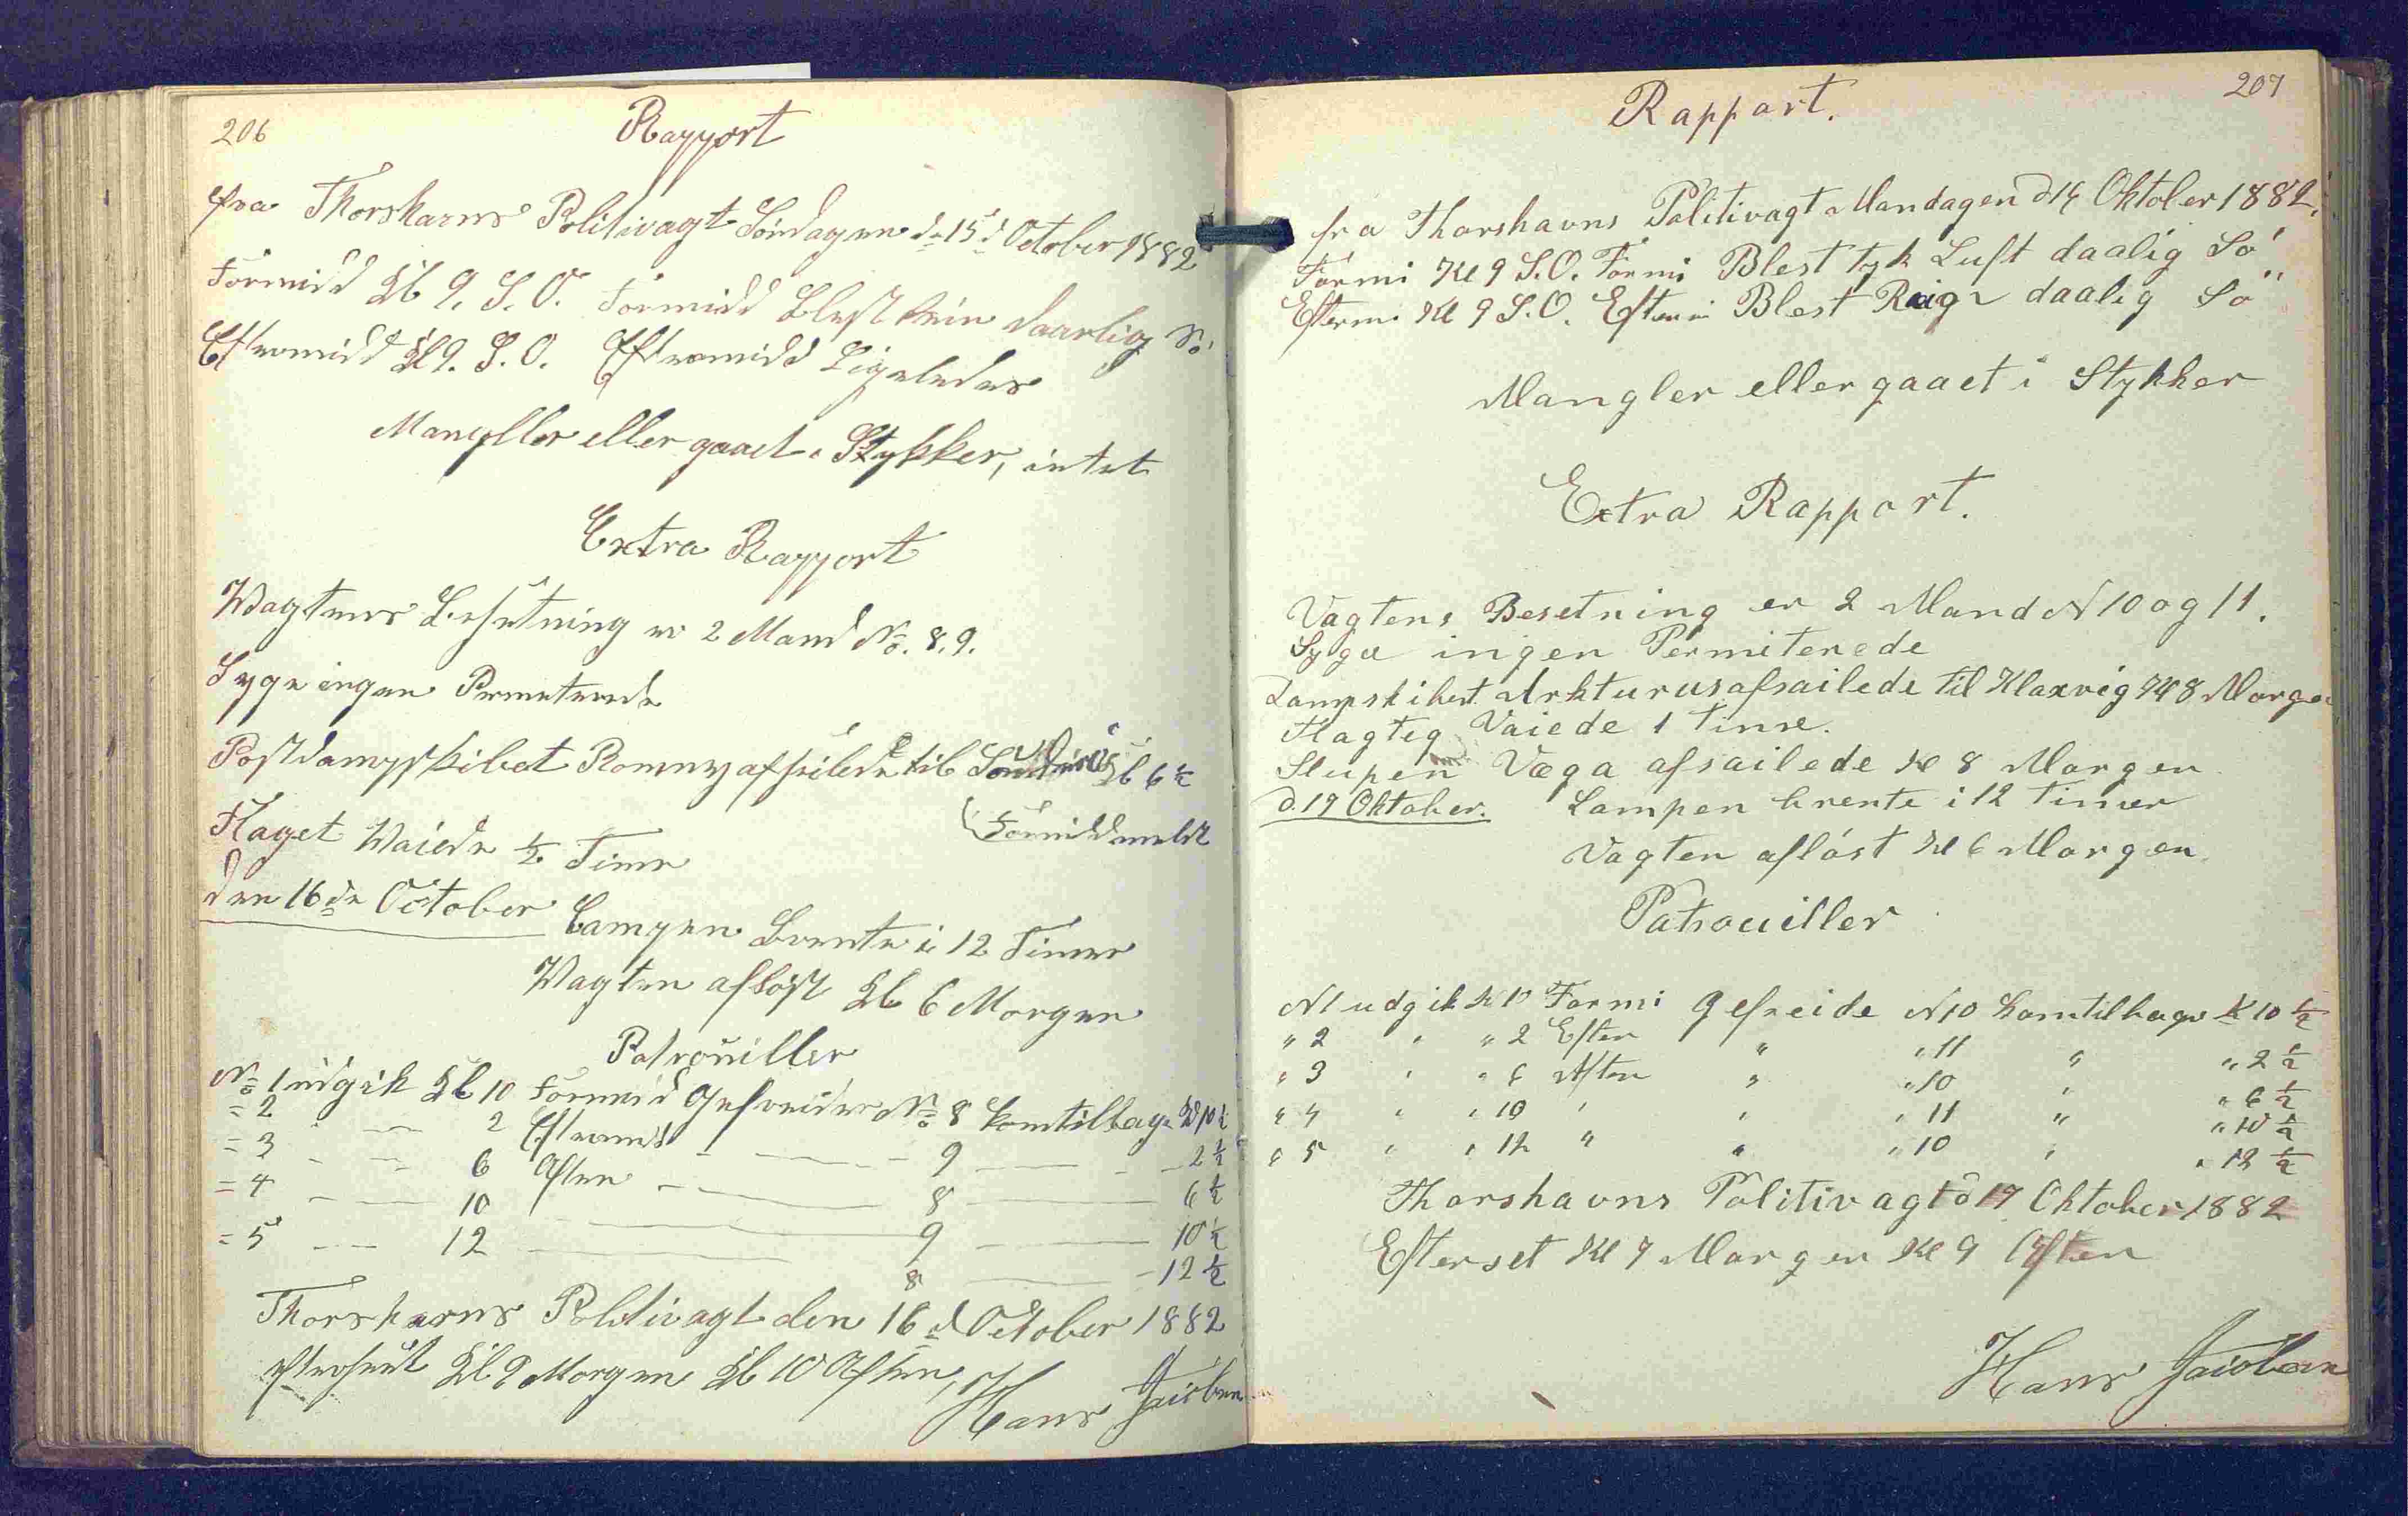 206
Rapport
fra Thorshavns Politivagt Söndagen d. 15d October 1882
Formidd Kl 9. S.O. Formidd Blest daarlig Sö
Eftermidd Kl 9. S.O. Eftermidd Ligeledes
Mangller eller gaaet i Stykker, intet
Extra Rapport
Wagtens Besetning er 2 Mand No. 8.9.
Syge ingen Permeterede
Postdampskibet Romny afseilede til Kl 6 ½
(Formidd
Flaget Waiede ½ Time
den 16de October Lampen Brente i 12 Timer
Wagten aflöst Kl 6 Morgen
Patrouiller
No 1 udgik Kl 10 Formid Gefreider No 8 kom tilbage Kl 10 ½
= 2 - - 2 Eftermid - - 9 - - 2 ½
= 3 - - 6 Aften - - 8 - - 6 ½
= 4 - - 10 - - 9 - - 10 ½
= 5 - - 12 - - 8 - - 12 ½
Thorshavns Politivagt den 16d October 1882
Efterseet Kl 9 Morgen Kl 10 Aften,
Hans
207
Rapport.
fra Thorshavns Politivagt Mandagen d 16 Oktober 1882.
Formi Kl 9 S.O. Formi Blest tyk Luft daalig Sö
Eftermi Kl 9 S.O. Eftermi Blest Reign daalig Sö
Mangler eller gaaet i Stykker
Extra Rapport.
Vagtens Besetning er 2 Mand N 10 og 11.
Syge ingen Permiterede
Dampskibet Arkturus afsailede til Klaxvig Kl 8 Morgen
Flagteg Vaiede 1 Time.
Slupen Væga afsailede Kl 8 Morgen
d. 17 Oktober. Lampen brente i 12 Timer
Vagten aflöst Kl 6 Morgen
Patrouiller
N 1 udgik kl 10 Formi Gefreide N 10 kom tilbage k 10 ½
" 2 " " 2 Efter " " 11 " " 2 ½
" 3 " " 6 Aften " " 10 " " 6 ½
" 4 " " 10 " " " 11 " " 10 ½
" 5 " " 12 " " " 10 " " 12 ½
Thorshavns Politivagt d 17 Oktober 1882
Efterset Kl 7 Morgen Kl 9 Aften
Hans